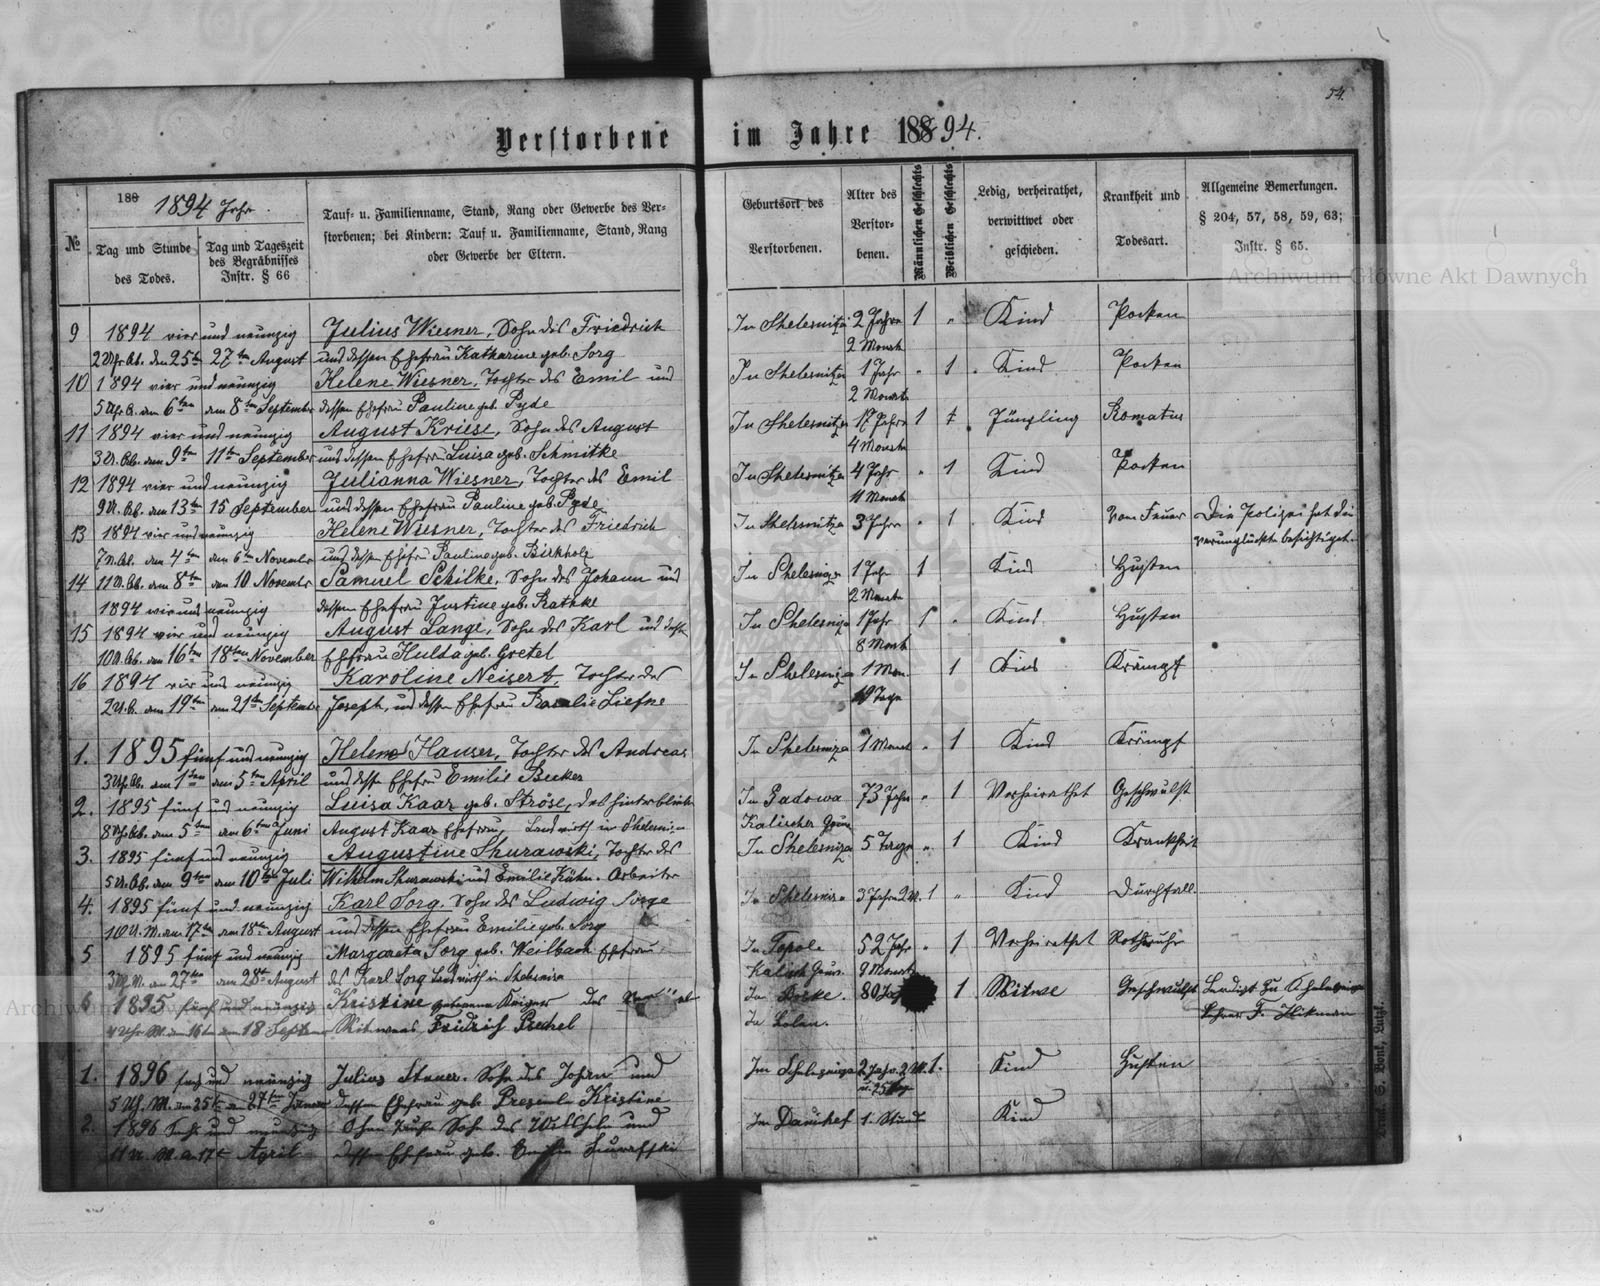 54.
Verstorbene im Jahre 188 94.
188 1894 Jahr.
№
Tag und Stunde
des Todes.
Tag und Tageszeit
des Begräbnisses
Instr. § 66
Tauf- u. Familienname, Stand, Rang oder Gewerbe des Ver-
storbenen; bei Kindern: Tauf u. Familienname, Stand, Rang
oder Gewerbe der Eltern.
Geburtsort des
Verstorbenen.
Alter des
Verstor-
benen.
Männlichen Geschlechts
Weiblichen Geschlechts
Ledig, verheirathet,
verwittwet oder
geschieden.
Krankheit und
Todesart.
Allgemeine Bemerkungen.
§ 204, 57, 58, 59, 63;
Instr. § 65.
Archiwum Główne Akt Dawnych
9 1894 vier und neunzig Julius Wiesner, Sohn des Friedrich In Shelesnitza 2 Jahre 1 " Kind Pocken
2 Uhr Ab. den 25ten 27ten August und dessen Ehefrau Katharine geb. Sorg 2 Monat
10 1894 vier und neunzig Helene Wiesner, Tochter des Emil und In Shelesnitza 1 Jahr " 1 Kind Pocken
5 Uhr A. am 6ten am 8ten September dessen Ehefrau Pauline geb. Pyde 2 Monat
11 1894 vier und neunzig August Kriese, Sohn des August In Shelesnitza 17 Jahre 1 Jüngling Romatus
3 U. Ab. am 9ten 11ten September und dessen Ehefrau Luisa geb. Schmitke 4 Monate
12 1894 vier und neunzig Julianna Wiesner, Tochter des Emil In Shelesnitza 4 Jahr " 1 Kind Pocken
9 U. Ab. am 13ten 15 September und dessen Ehefrau Pauline geb. Pyde 11 Monat
13 1894 vier und neunzig Helene Wiesner, Tochter des Friedrich In Shelesnitza 3 Jahr " 1 Kind Vom Feuer Die Polizei hat die
7 U. Ab. am 4ten am 6ten November und dessen Ehefr. Pauline geb. Birkholz verunglückte besichtiget.
14 11 U. Ab. am 8ten am 10 November Samuel Schilke, Sohn des Johann und In Shelesniza 1 Jahr 1 Kind Husten
1894 vier und neunzig dessen Ehefrau Justine geb. Rathke 2 Monate
15 1894 vier und neunzig August Lange, Sohn des Karl und dessen In Shelesniza 1 Jahr 1 " Kind Husten
10 U. Ab. am 16ten 18ten November Ehefrau Hulda geb. Gretel 8 Monat
16 1894 vier und neunzig Karoline Neisert, Tochter des In Shelesniza 1 Mon. 1 Kind Krämpf
2 U. A. am 19ten am 21ten September Joseph, und dessen Ehefrau Liefke Tage
1. 1895 fünf und neunzig Helene Hauser, Tochter des Andreas In Shelesniza 1 Monat " 1 Kind Krämpf
3 Uhr Ab. am 1ten am 5ten April und dessen Ehefrau Emilie Becker
2. 1895 fünf und neunzig Luisa Kaar geb. Ströse, des hinterblieb. In Zadowa 73 Jahre " 1 Verheirathet Geschwulst
8 Uhr Ab. am 5ten am 6ten Juni August Kaar Ehefrau, Landwirth in Shelesniza Kalischer Gouv.
3. 1895 fünf und neunzig Augustine Shurawski, Tochter des In Shelesniza 5 Tage " 1 Kind Krankheit
5 U. Ab. am 9ten am 10ten Juli Wilhelm Shurawski und Emilie Kühn. Arbeiter
4. 1895 fünf und neunzig Karl Sorg, Sohn des Ludwig Sorge In Shelesniza 3 Jahre 2 M. 1 " Kind Durchfall.
10 U. M. am 17ten am 18ten August und dessen Ehefrau Emilie geb. Sorg
5 1895 fünf und neunzig Margareta Sorg geb. Weilbach Ehefrau In Topole 52 Jahr " 1 Verheirathet Rothruhr
3 U. M. am 27ten am 28ten August des Karl Sorg Landwirth in Shelesniza Kalisch Gouv. 8 Monat
6 1895 fünf und neunzig Kristine geborene des In 80 Jahr 1 Witwe Geschwulst
4 Uhr M. am 16ten am 18 September Witwe Fridrich Prechel In Polen. Lehrer F. Hikman
1. 1896 sechs und neunzig Julius Sohn des Johan und Im Schelesniza 2 Jahr. 2 M. 1. Kind Husten
5 Uh. M. am 25ten am 27ten Januar dessen Ehefrau geb. Kristine u. 25 Tag
2. 1896 sechs und neunzig Ohne Taufe Sohn des Wilhelm und Im 1. Stund Kind
11 U. M. am 17ten April dessen Ehefrau geb.